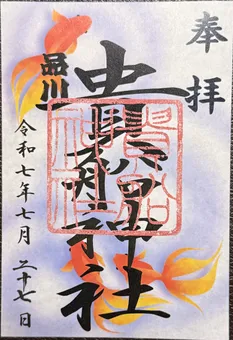 奉拝
品川
貴船神社
令和七年七月二十七日